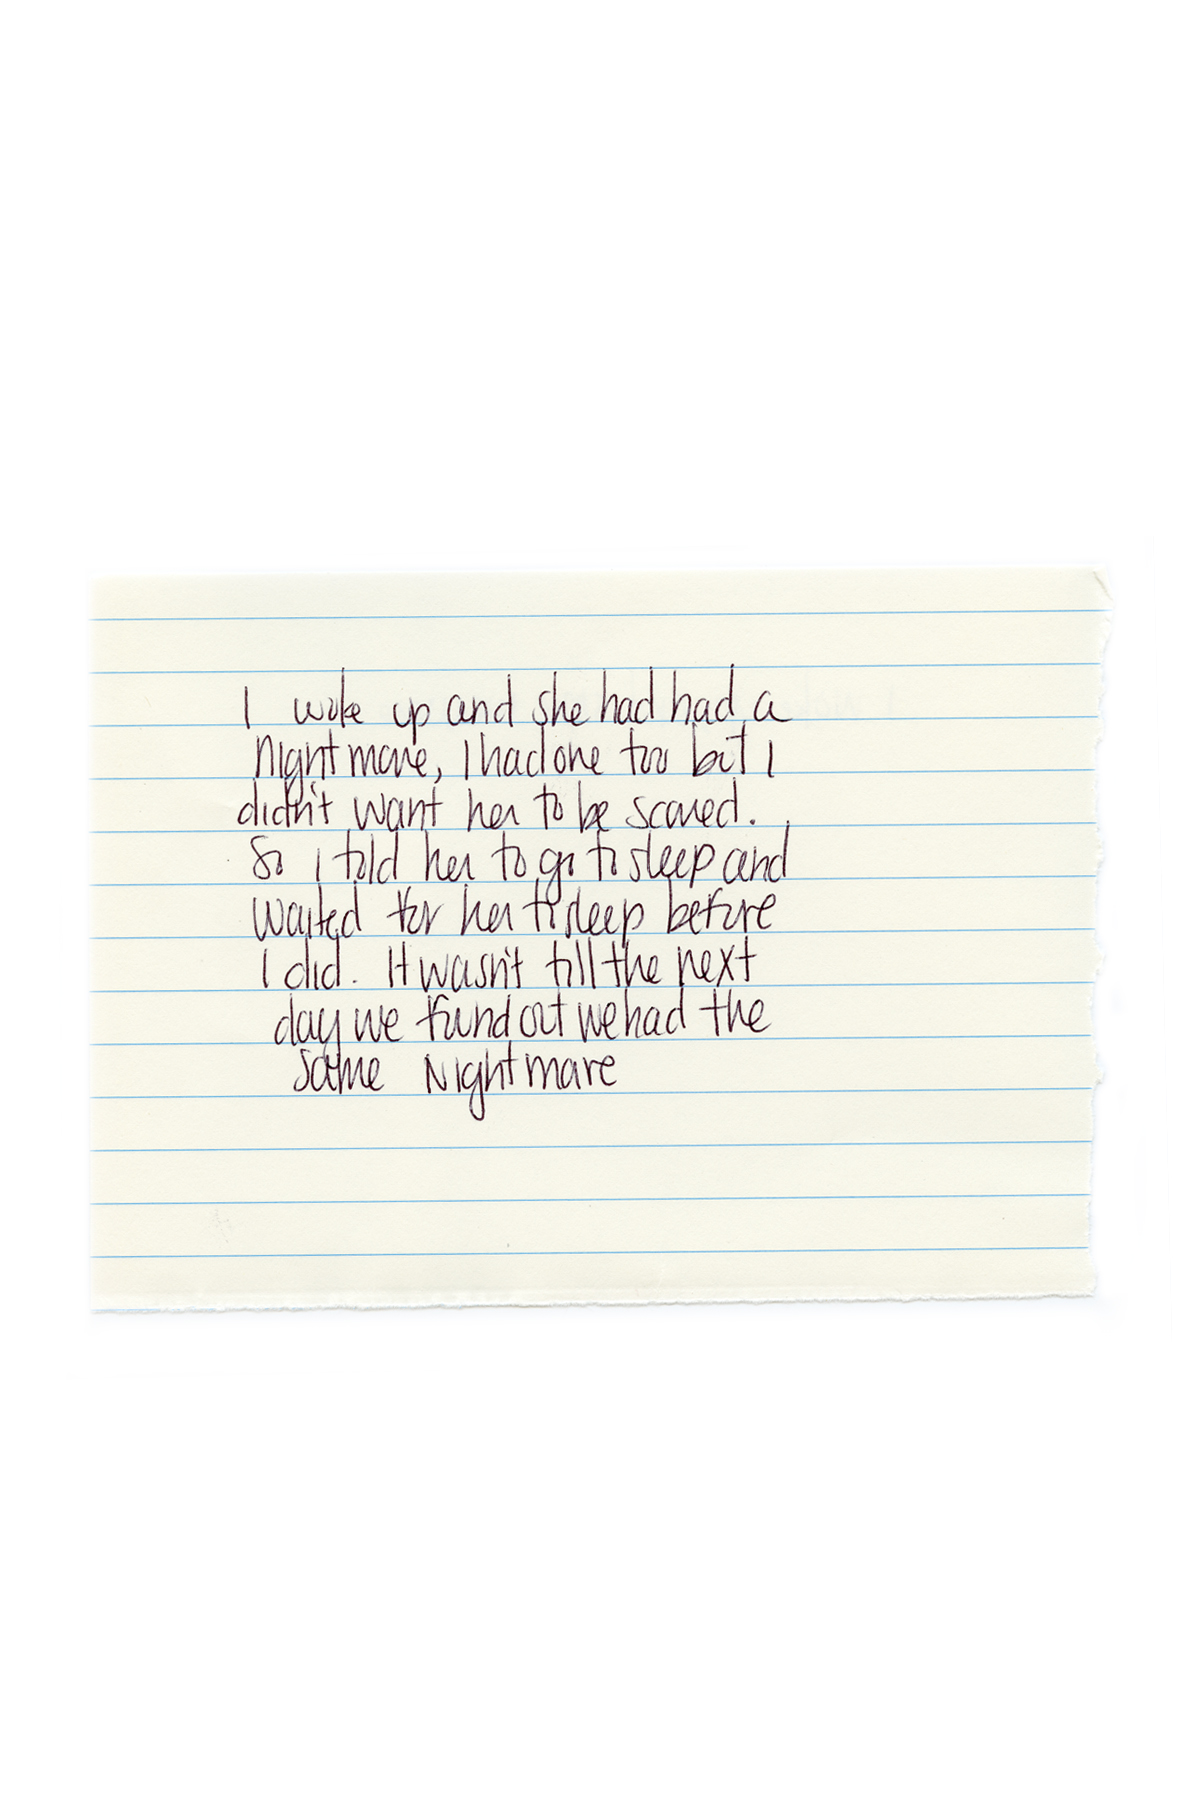 I woke up and she had had a
Nightmare, I had one too but I
didn't want her to be scared.
So I told her to go to sleep and
waited for her to sleep before
I did. It wasn't till the next
day we found out we had the
same Nightmare